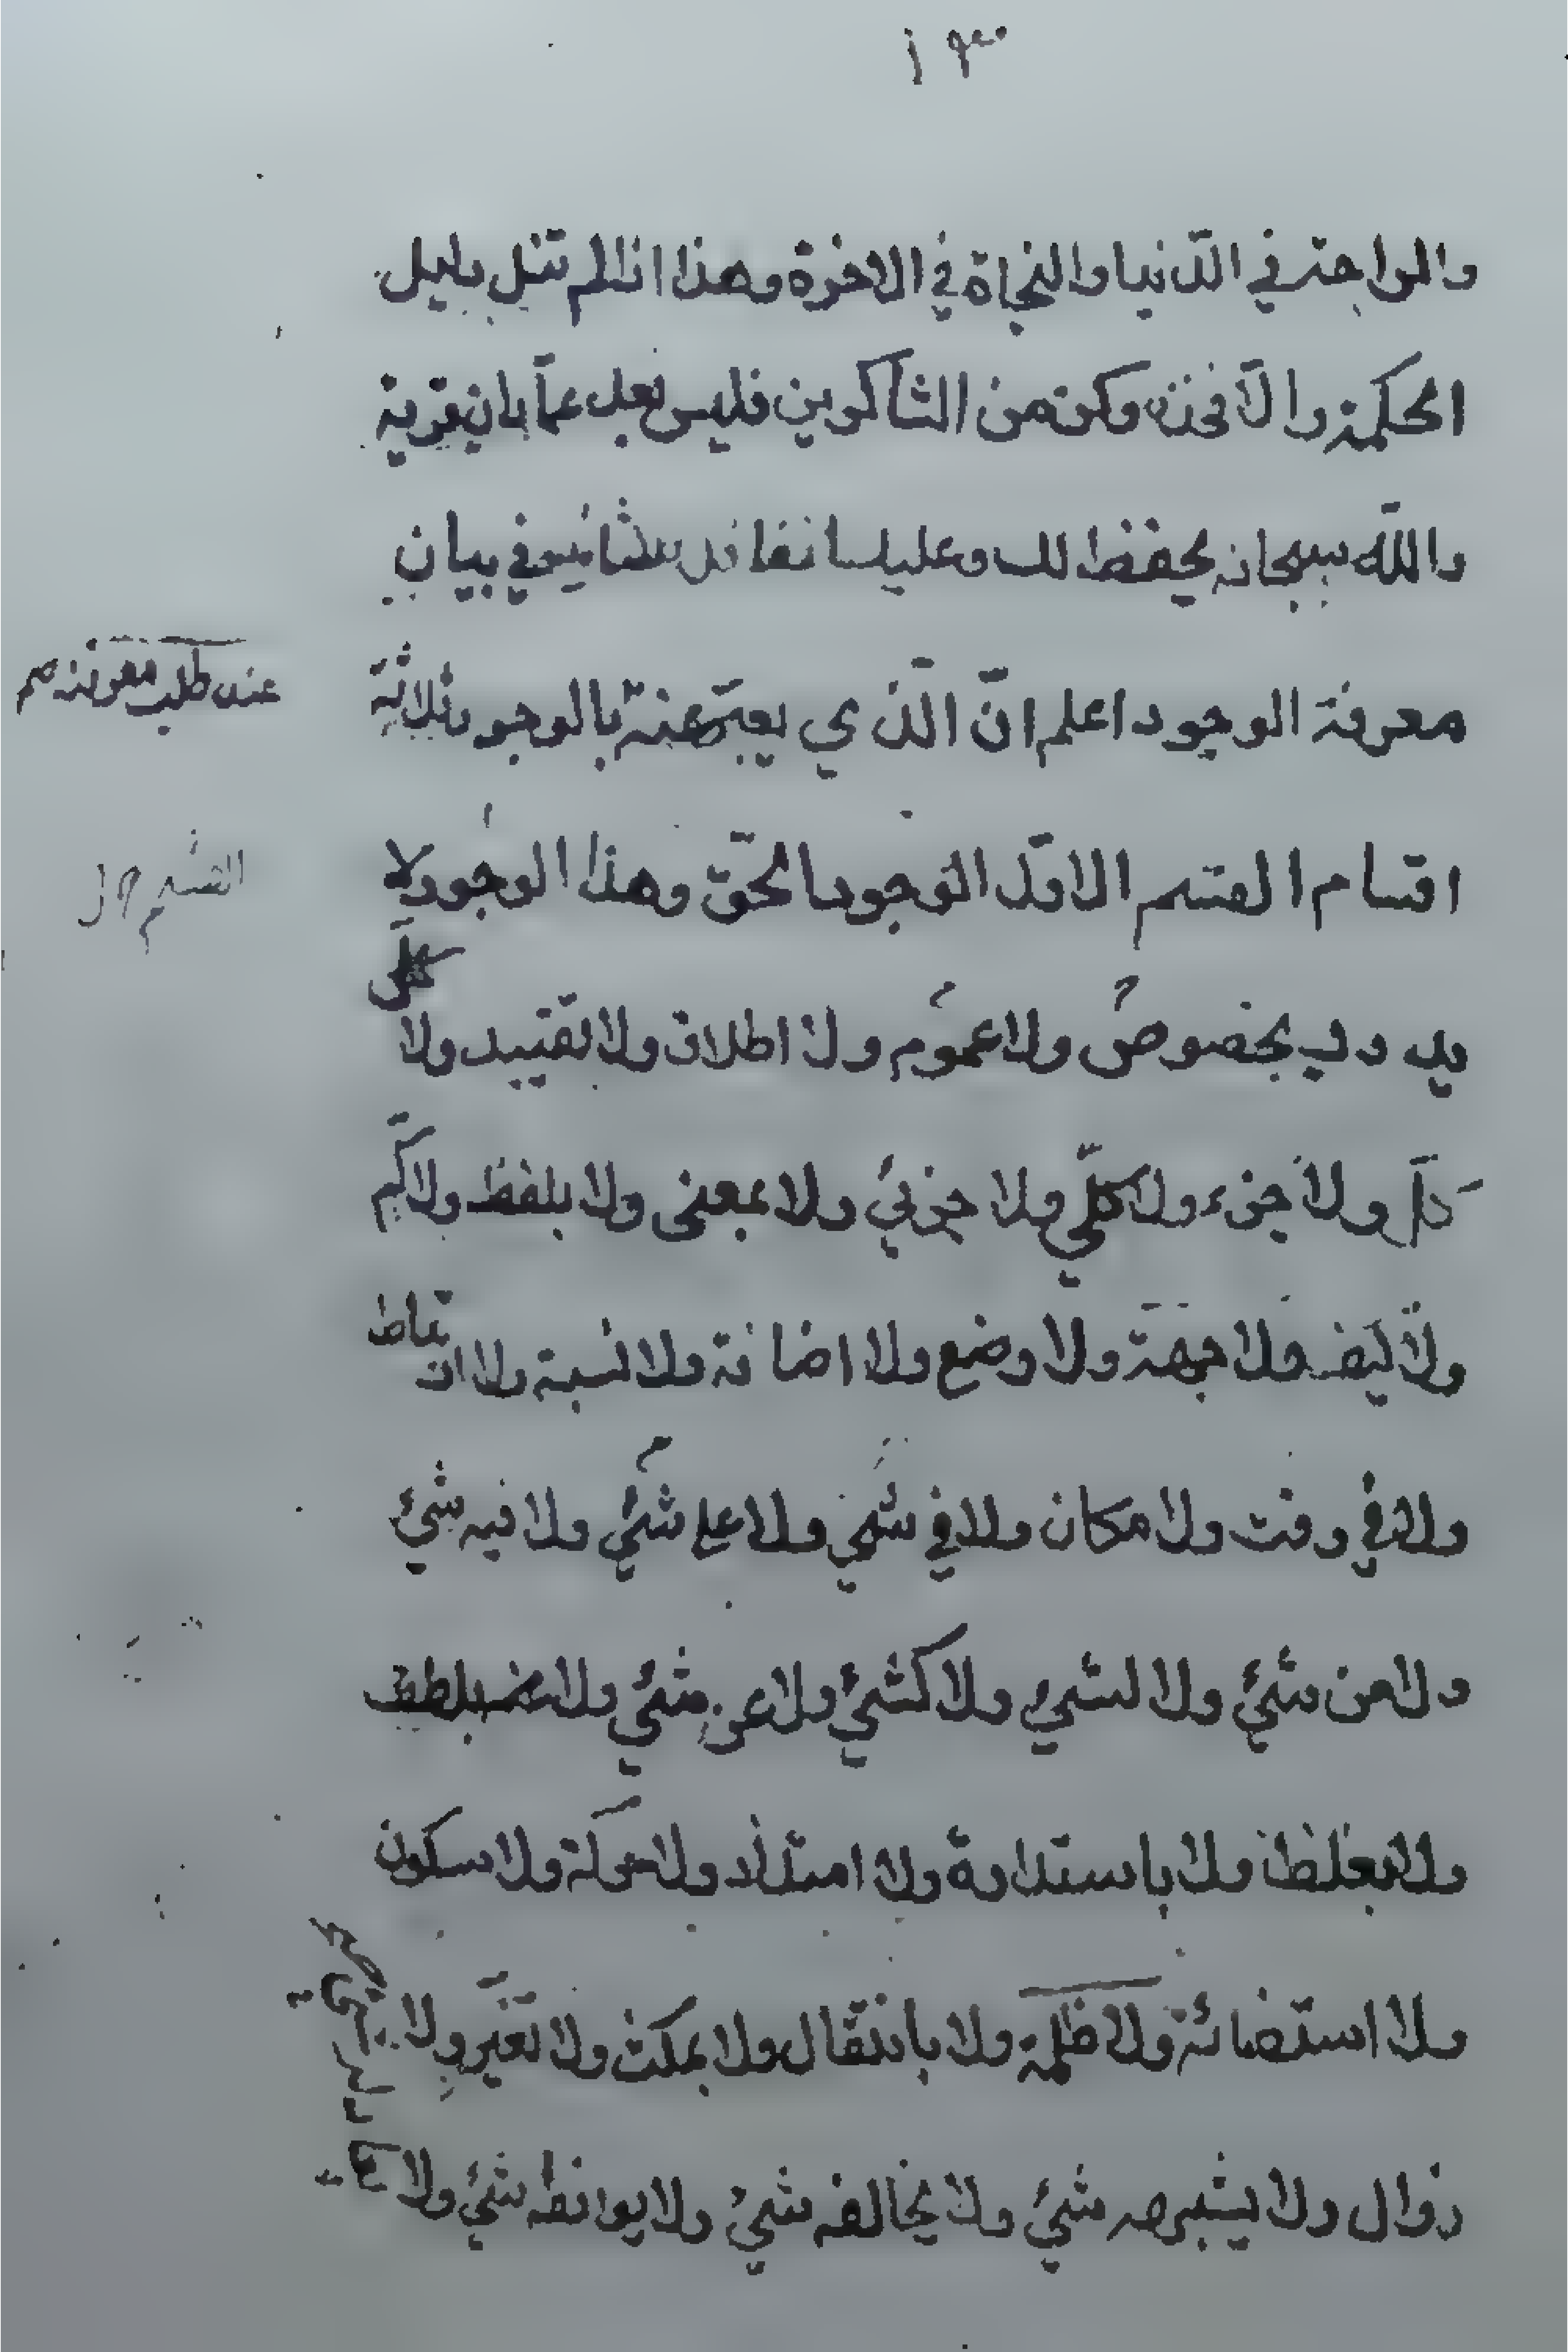 ١٣
والراحة في الدّنيا والنجاة في الاخرة وهذا اذا لم تنل بدليل
الحكمة والّا فخذه وكن من الشاكرين فليس بعد عبّادان قرية
والله سبحانه يحفظ لك وعليك الفائدة الثانية في بيان
معرفة الوجود اعلم انّ الّذي يعبّر عنه بالوجود ثلاثة
عند طلب معرفته صح
اقسام القسم الاوّل الوجود الحقّ وهذا الوجود لا
القسم الاول
يدرك بخصوص ولا عموم ولا اطلاق ولا تقييد ولا كلّ
كلّ ولا جزء ولا كلّي ولا جزئي ولا بمعنى ولا بلفظ ولا كمّ
ولا كيف ولا جهة ولا وضع ولا اضافة ولا نسبة ولا ارتباط
ولا في وقت ولا مكان ولا في شئ ولا على شئ ولا فيه شئ
ولا من شئ ولا لشئ ولا كشئ ولا عن شئ ولا بلطف
ولا بغلظ ولا باستدارة ولا امتداد ولا حركة ولا سكون
ولا استضائة ولا ظلمة ولا بانتقال ولا بمكث ولا تغيّر ولا
زوال ولا يشبهه شئ ولا يخالفه شئ ولا يوافقه شئ ولا